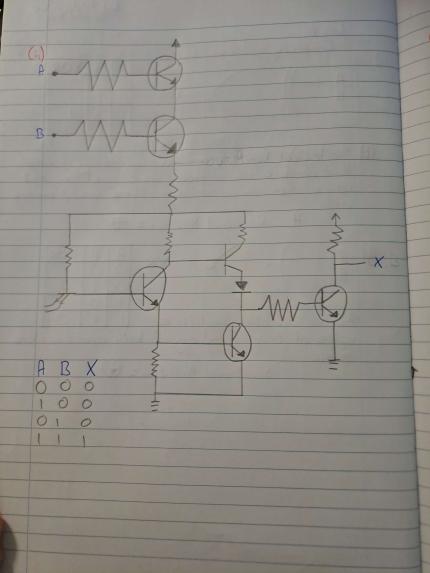 (1)
A
B
X
A B X
0 0 0
1 0 0
0 1 0
1 1 1